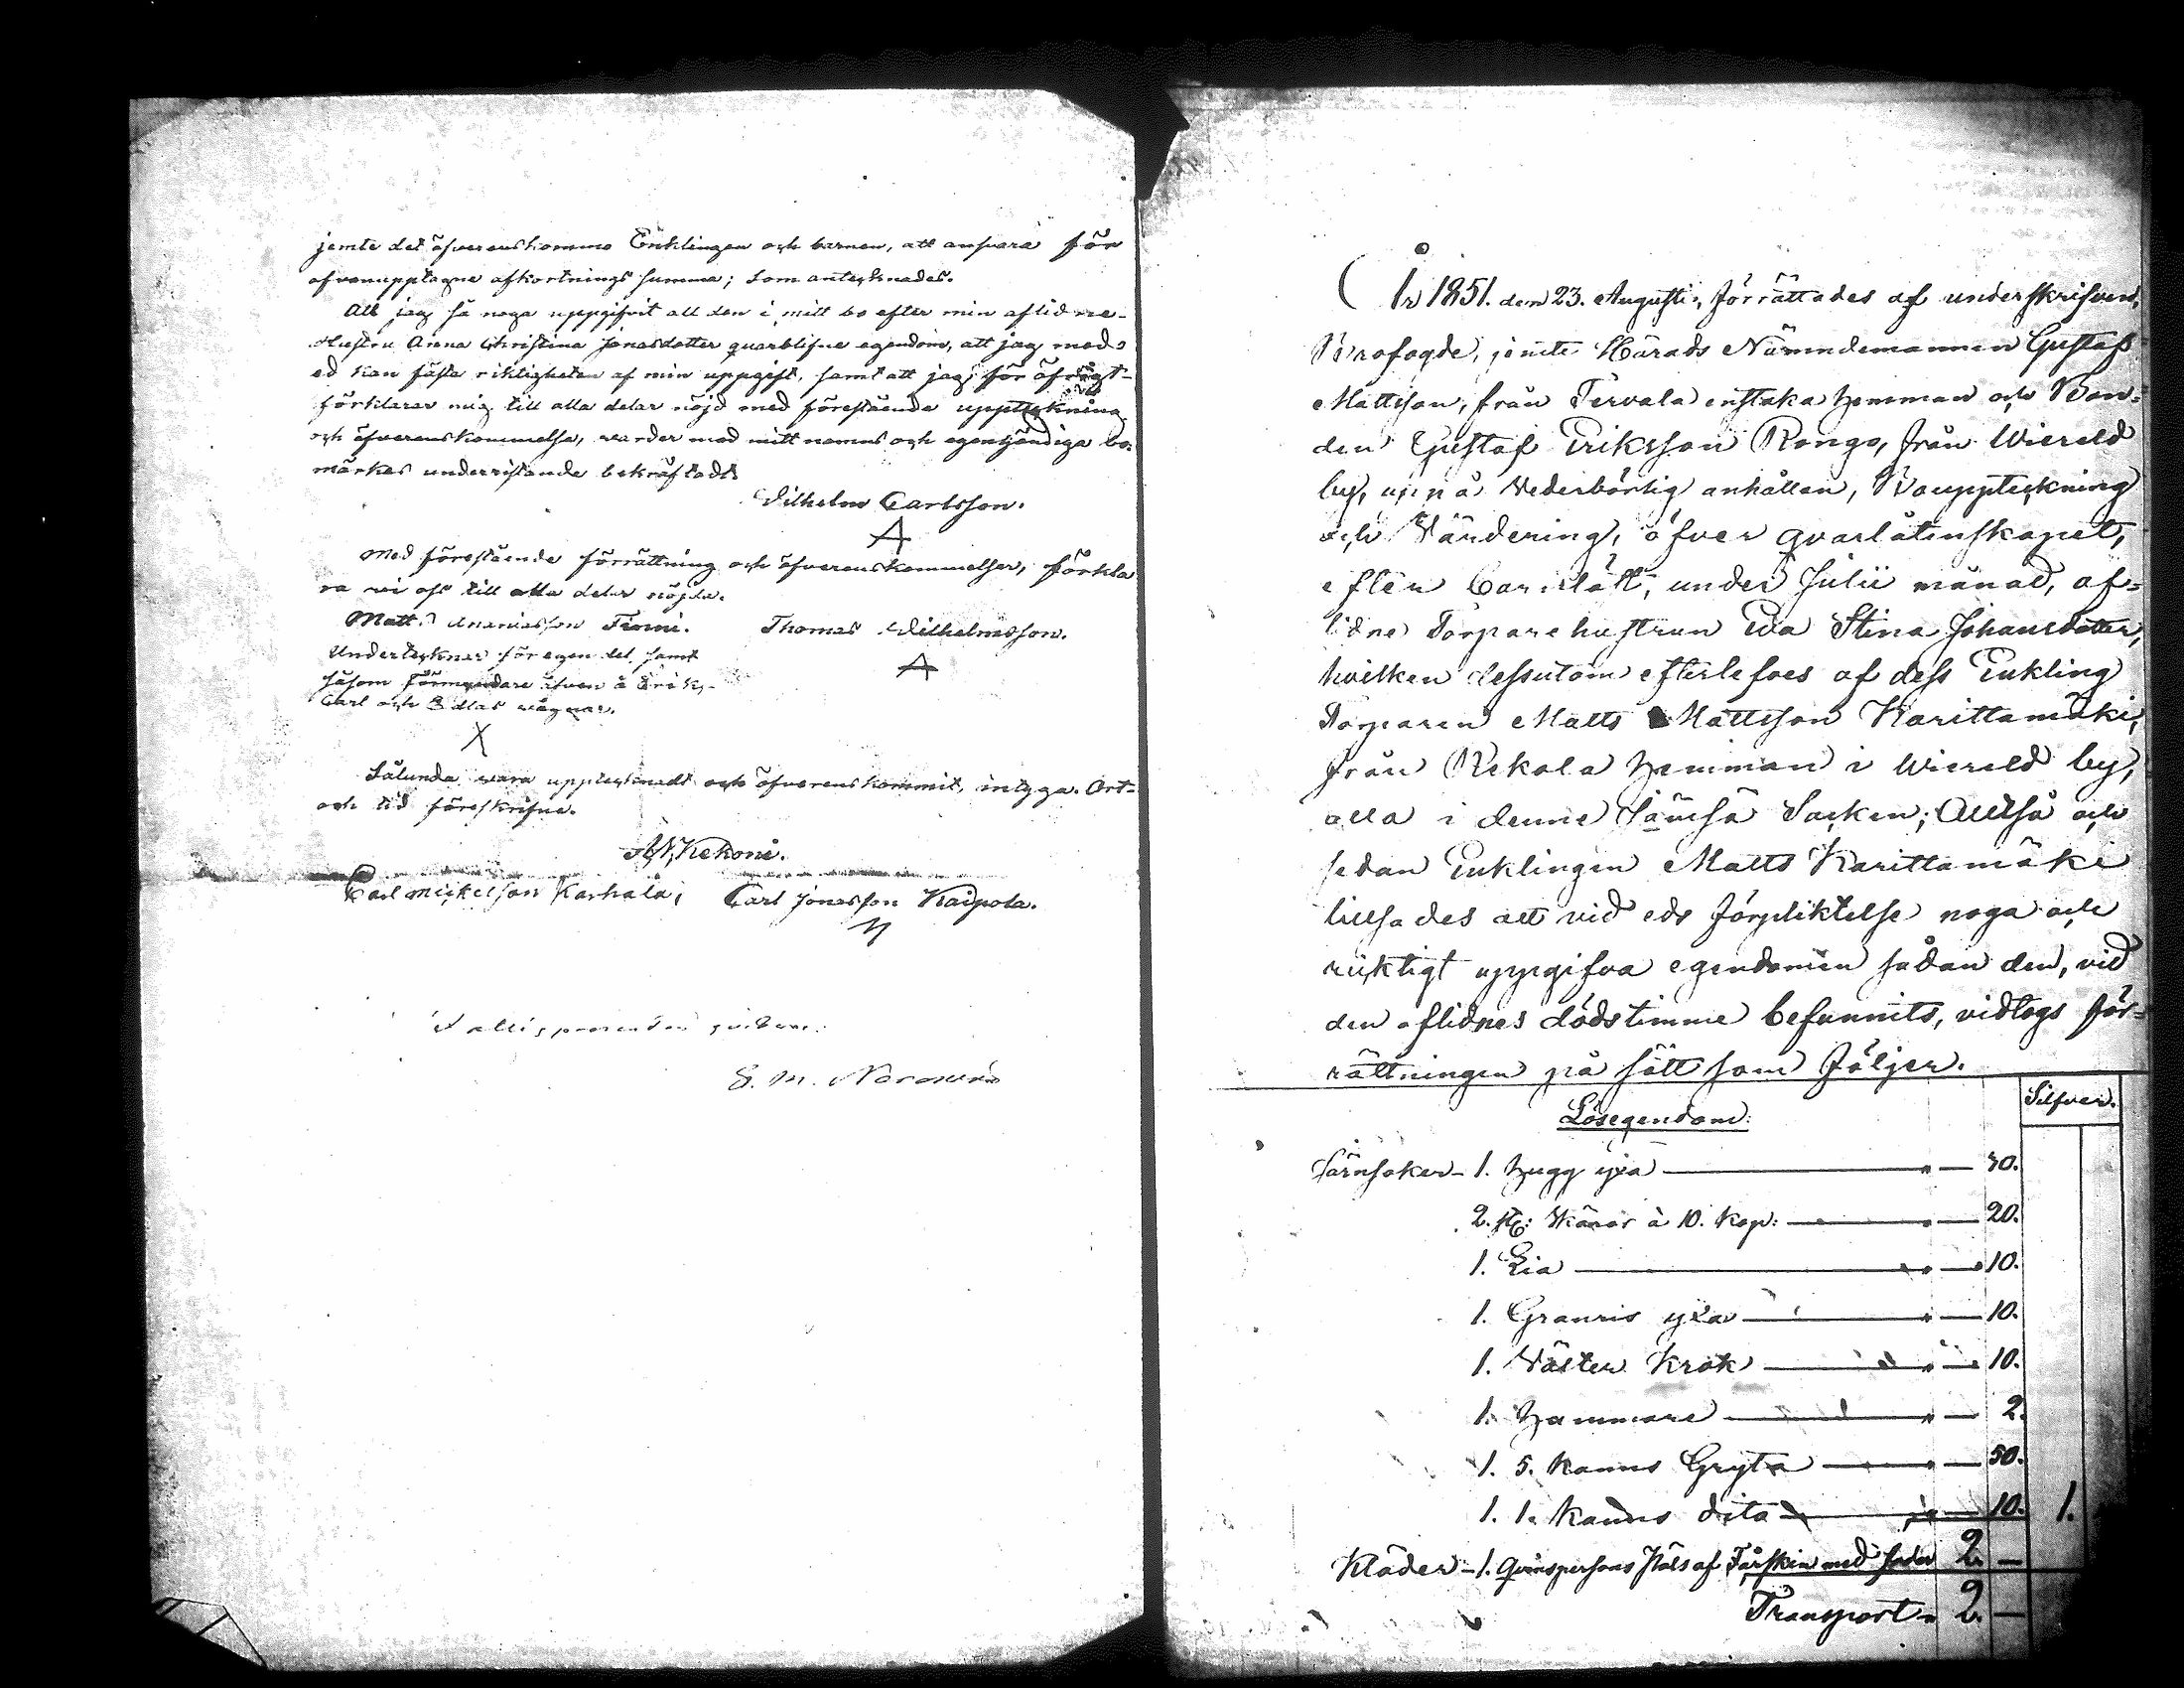 jemte det öfverenskommo Enklingen och barnen, att ansvara för
ofvanupptagne afkortnings summa; som antecknades.
Att jag så noga uppgifvit all den i mitt bo efter min aflidne
Hustru Anna Christina Jonasdotter quarblifne egendom, att jag med
ed kan fästa riktigheten af min uppgift, samt att jag för öfrigt
förklarar mig till alla delar nöjd med förestående uppteckning
och öfverenskommelse, varder med mitt namns och egenhändiga bo-
märkes underristande bekräftadt
Wilhelm Carlsson.
A
Med förestående förrättning och öfverenskommelser, förkla
ra vi oss till alla delar nöjda.
Matts Ananiasson Finni. Thomas Wilhelmsson.
Undertecknar för egen del, samt
såsom Förmyndare äfven å Erik,
Carl och Edlas vägnar.
X
Sålunda vara upptecknadt och öfverenskommit, intyga. Ort
och tid föreskrifne.
Kekoni.
Carl Mickelsson Karhala, Carl Jonasson Kaipola.
S. M.
År 1851. den 23. Augusti, förrättades af underskrifven,
Brofogde, jemte Härads Nämndemannen Gustaf
Mattsson, från Tervala enstaka hemman och Bon-
den Gustaf Eriksson Rongo, från Wiereld
by, uppå Vederbörlig anhållan, Bouppteckning
och Värdering, öfver qvarlåtenskapet,
efter Barnlött, under Julii månad, af-
lidne Torpare hustrun Eva Stina Johansdotter,
hvilken dessutom efterlefves af dess Enkling
Torparen Matts Mattsson Karittamäki,
från Rekola hemman i Wiereld by,
alla i denne Jämsä Socken; Alltså och
sedan Enklingen Matts Karittamäki
tillsades att vid eds förpliktelse noga och
riktigt uppgifva egendomen sådan den, vid
den aflidnes dödstimme befunnits, vidtogs för-
rättningen på sätt som följer.
Silfver.
Lösegendom:
Järnsaker - 1. hugg yxa " — 30.
2. st: Skäror à 10. Kop: " — 20.
1. Lia " — 10.
1. Granris yxa " — 10.
1. Välter Krok " — 10.
1. hammare " — 2.
1. 5. Kanns Gryta " — 50.
1. 1. Kanns dito " — 10. 1.
Kläder - 1. Qvinspersons Päls af Fårskin med foder 2. —
Transport " 2. —